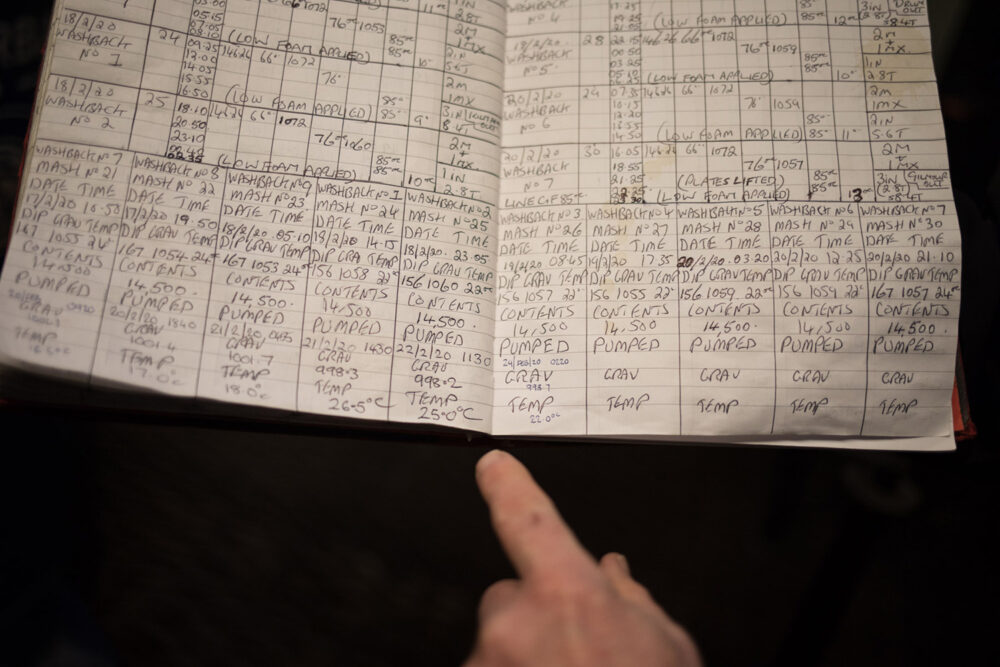 03.00
05.15
07.05
08.10
66 1072
76° 1053
11"
1IN
2.8T
18/2/20 24 09.25 14626 66° 1072
WASHBACK 12.00 (LOW FOAM APPLIED) 85° 10" 2M
No 1 14.05 76° 85° 1MX
15.55 2IN
16.50 5.6T
18/2/20 25 18.10 14626 66° 1072 (LOW FOAM APPLIED) 85° 9" 2M
WASHBACK 20.50 1MX
No 2 23.10 76° 1060 3IN
00.45 85° 8.4T
02.35 (LOW FOAM APPLIED) 85° 10" 2M
1MX
1IN
2.8T
WASHBACK No 7 WASHBACK No 8 WASHBACK No 9 WASHBACK No 1 WASHBACK No 2
MASH No 21 MASH No 22 MASH No 23 MASH No 24 MASH No 25
DATE TIME DATE TIME DATE TIME DATE TIME DATE TIME
17/2/20 10.50 17/2/20 19.50 18/2/20 .05.10 18/2/20 14.15 18/2/20. 23.05
DIP GRAV TEMP DIP GRAV TEMP DIP GRAV TEMP DIP GRAV TEMP DIP GRAV TEMP
167 1055 22° 167 1054 24° 167 1053 24° 156 1058 22° 156 1060 22°
CONTENTS CONTENTS CONTENTS CONTENTS CONTENTS
14,500 14,500. 14,500. 14,500 14,500.
PUMPED PUMPED PUMPED PUMPED PUMPED
20/2/20 1840 21/2/20 0435 21/2/20 1430 22/2/20 1130
GRAV GRAV GRAV GRAV GRAV
1001.4 1001.7 998.3 998.2
TEMP TEMP TEMP TEMP TEMP
16.5°C 17.0°C 18.0° 26.5°C 25.0°C
WASHBACK 17.25
No 4 19.25
21.05 (LOW FOAM APPLIED) 85° 12" 3IN DRUM OUT
8.4T
19/2/20. 28 22.15 14626 66° 1072 2M
WASHBACK 00.50 76° 1059 1MX
No 5. 03.25 85° 1IN
05.10 85° 2.8T
06.25 (LOW FOAM APPLIED) 10"
20/2/20 29 07.35 14626 66° 1072 2M
WASHBACK 10.15 76° 1059 1MX
No 6 12.20 85° 2IN
14.50 (LOW FOAM APPLIED) 85° 11" 5.6T
20/2/20 30 16.05 14626 66° 1072 2M
WASHBACK 18.55 76° 1057 1MX
No 7 21.25 (PLATES LIFTED) 85° 3IN
(LOW FOAM APPLIED) 85° 13" 8.4T
WASHBACK No 3 WASHBACK No 4 WASHBACK No 5 WASHBACK No 6 WASHBACK No 7
MASH No 26 MASH No 27 MASH No 28 MASH No 29 MASH No 30
DATE TIME DATE TIME DATE TIME DATE TIME DATE TIME
19/2/20 08.45 19/2/20 17.35 20/2/20. 03.20 20/2/20 12.25 20/2/20 21.10
DIP GRAV TEMP DIP GRAV TEMP DIP GRAV TEMP DIP GRAV TEMP DIP GRAV TEMP
156 1057 22° 156 1055 22° 156 1059 22° 156 1059 22° 167 1057 24°
CONTENTS CONTENTS CONTENTS CONTENTS CONTENTS
14,500 14,500 14,500. 14,500 14,500.
PUMPED PUMPED PUMPED PUMPED PUMPED
24/FEB/20 0220
GRAV GRAV GRAV GRAV GRAV
998.7
TEMP TEMP TEMP TEMP TEMP
22.0°C